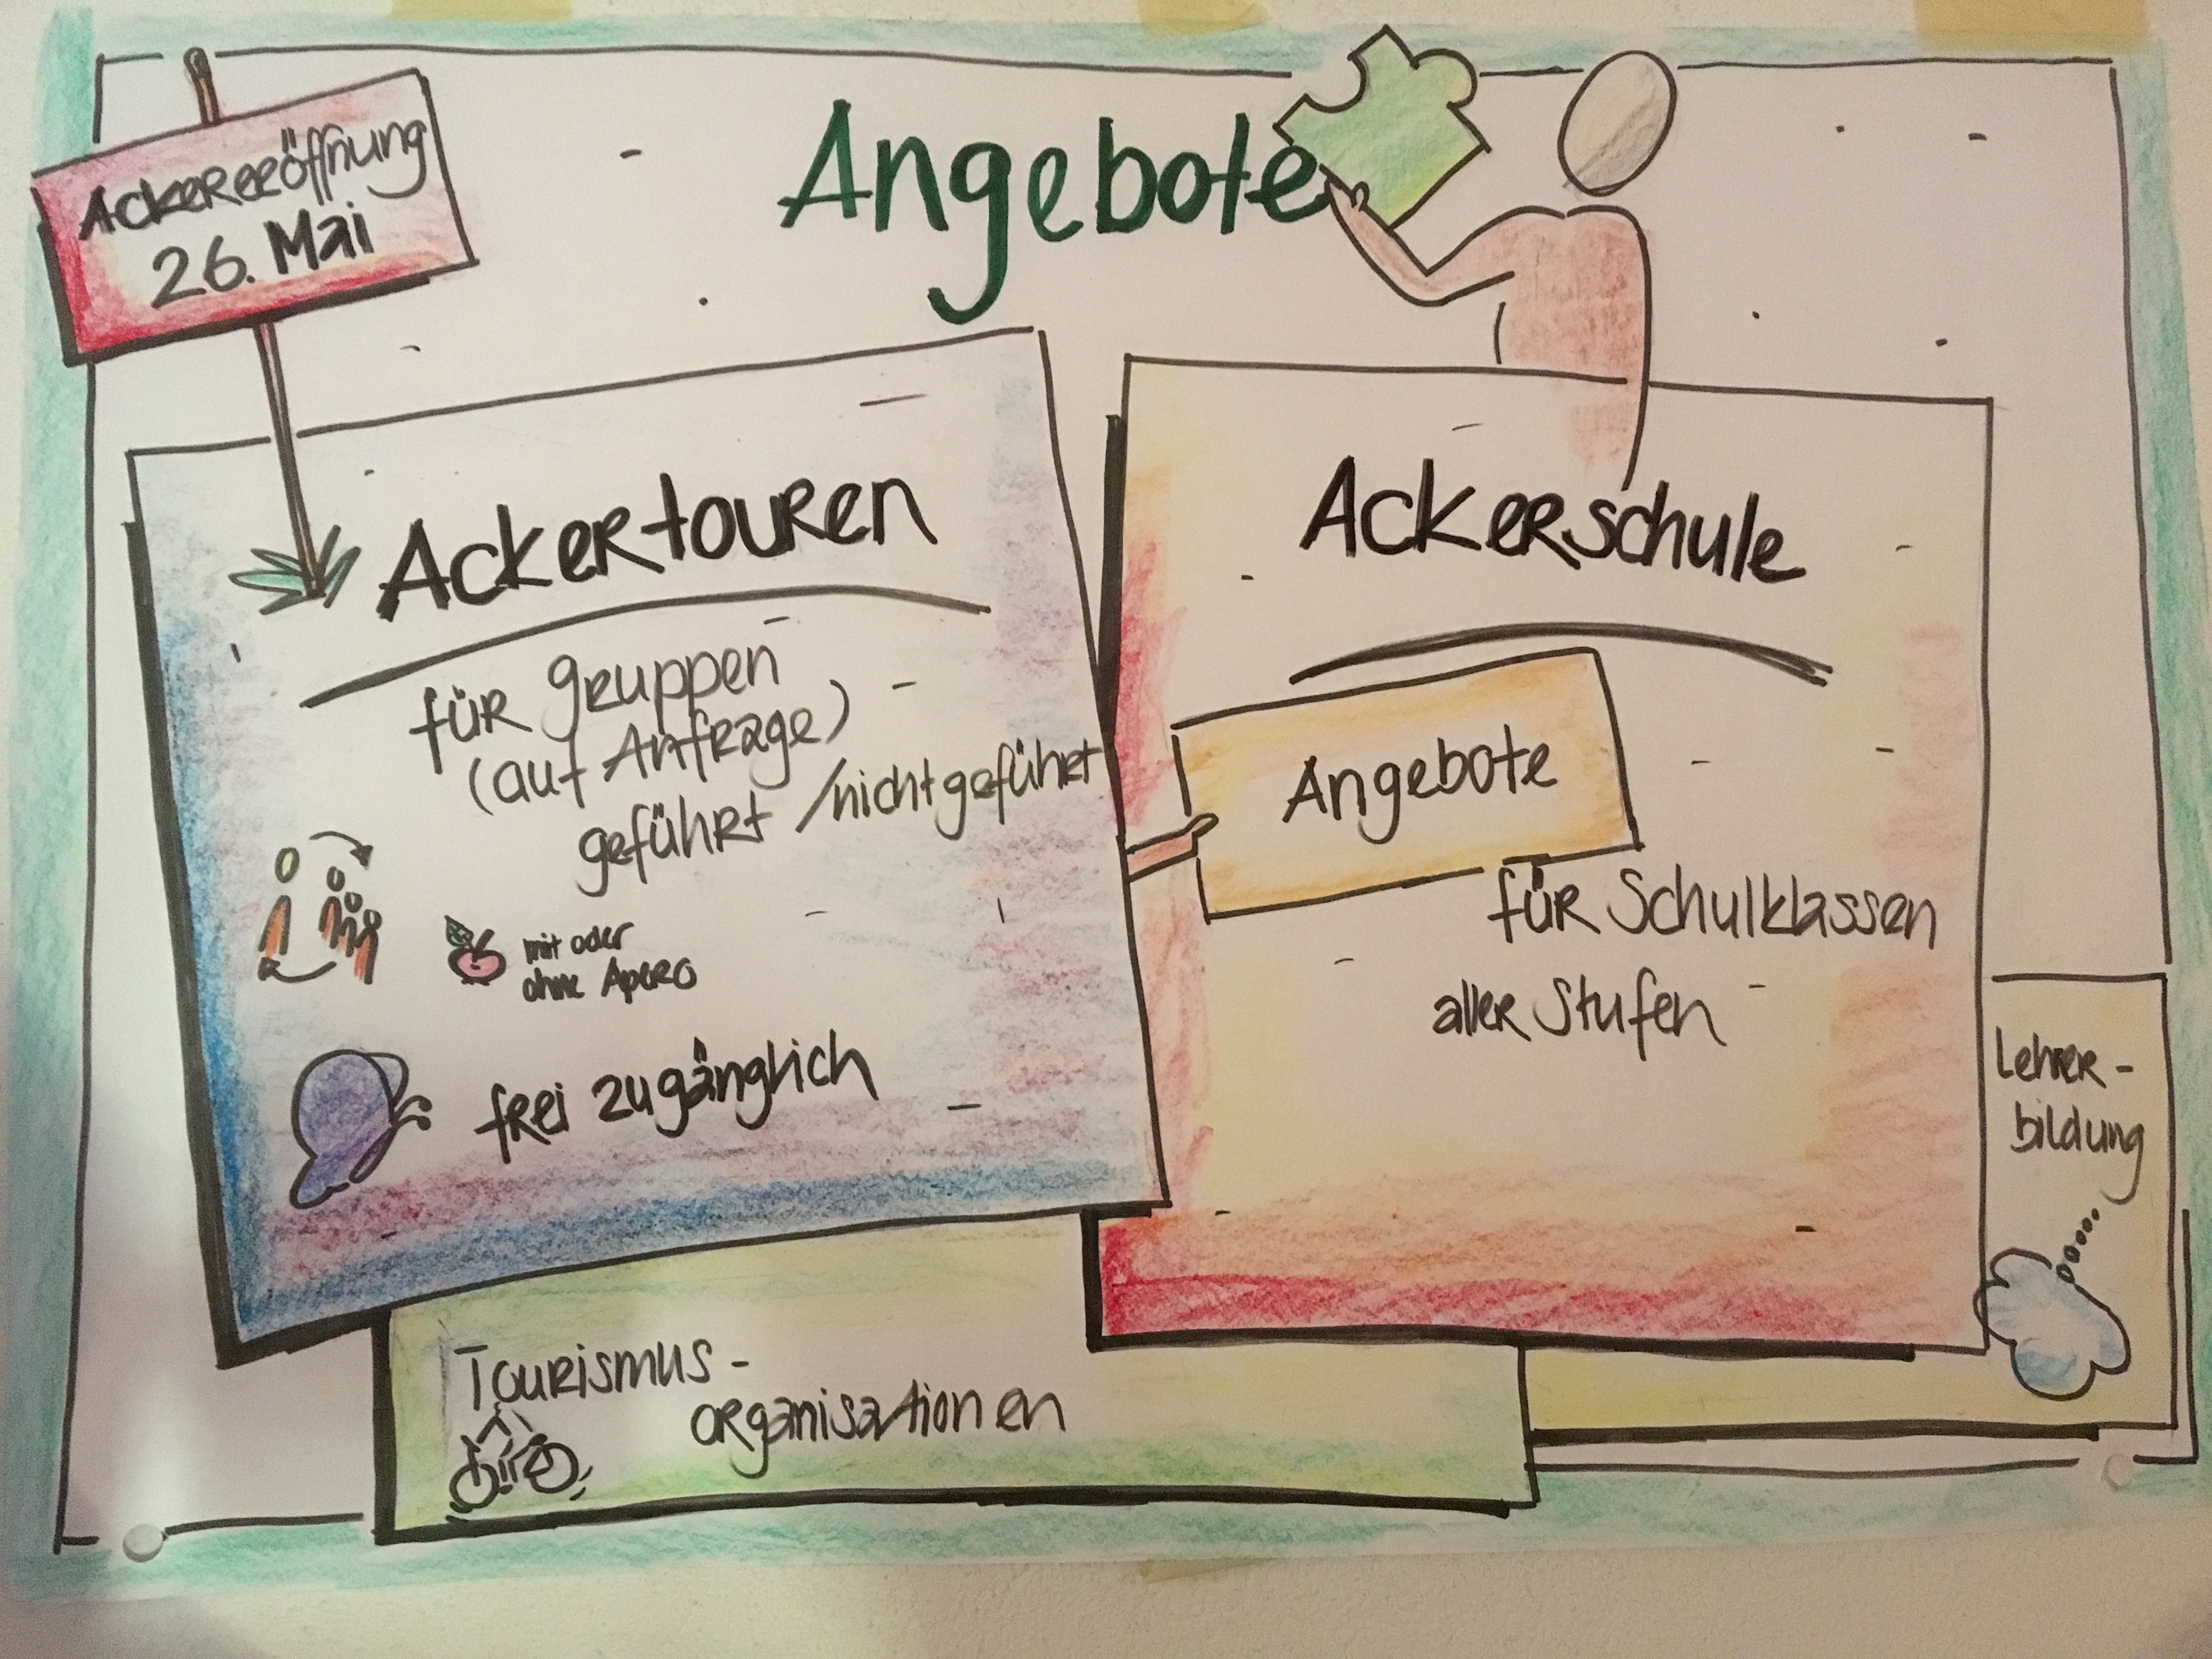 Ackereröffnung
26. Mai
Angebote
Ackertouren
für Gruppen
(auf Anfrage)
geführt / nicht geführt
mit oder
ohne Apero
frei zugänglich
Ackerschule
Angebote
für Schulklassen
aller Stufen
Lehrer-
bildung
Tourismus-
organisationen